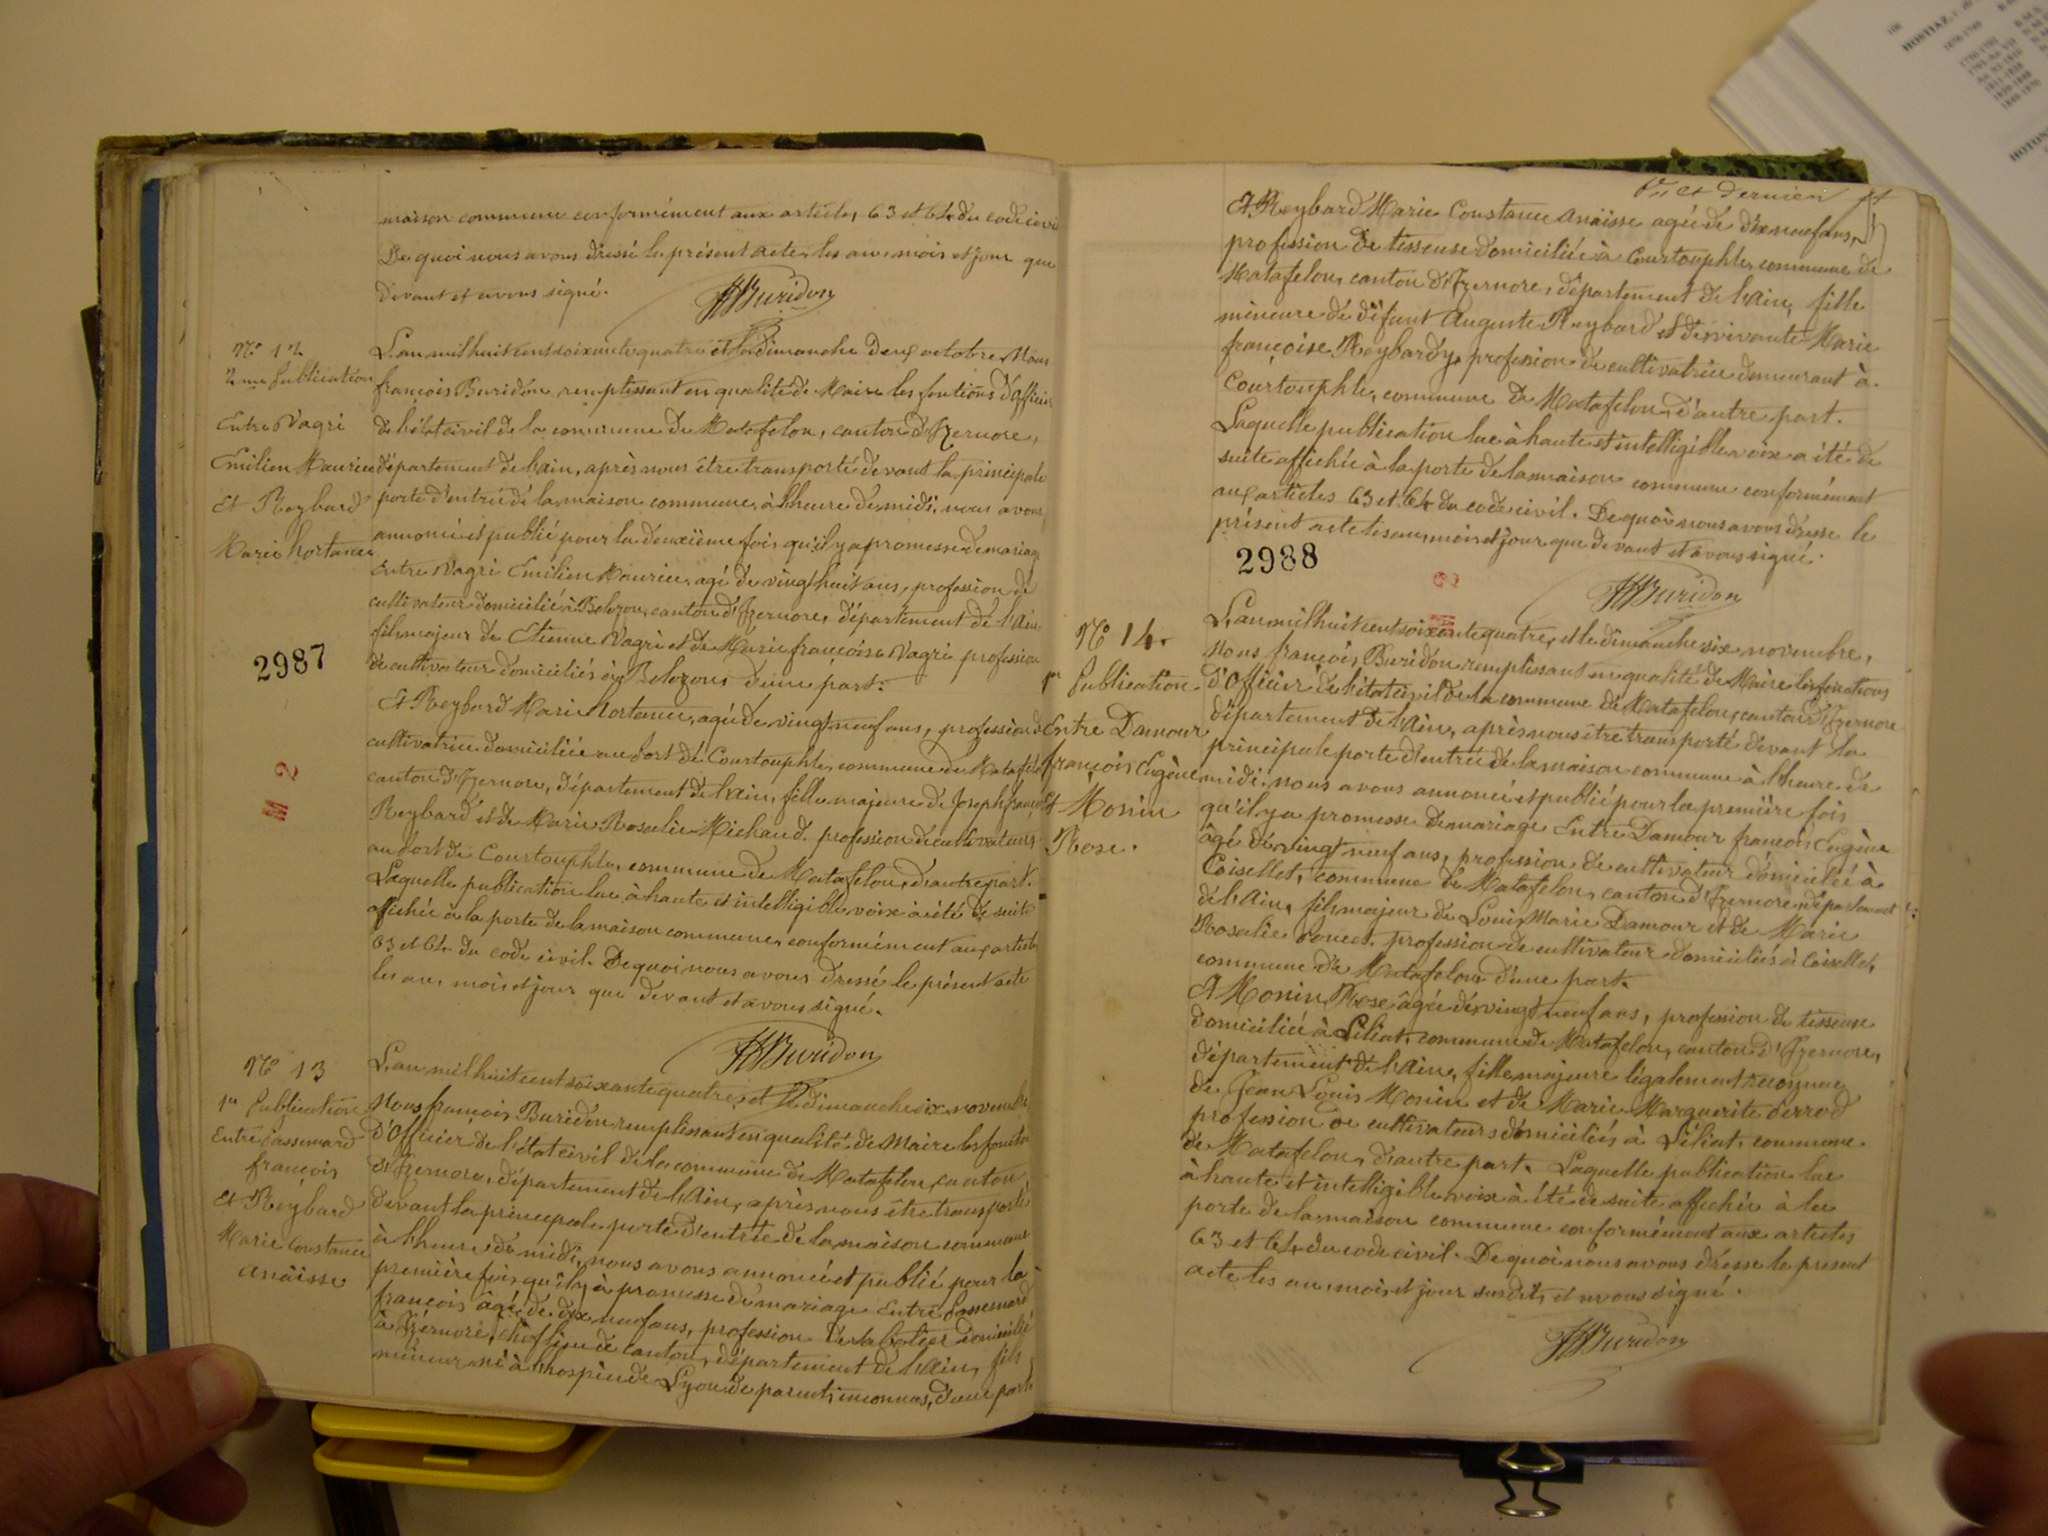 maison commune conformément aux articles 63 et 64 du code civil
De quoi nous avons dressé le présent acte, les an, mois et jour que
devant et avons signé.
Buridon
N° 12
2me Publication
Entre Vagri
Emilien Maurice
Et Reybard
Marie hortance
L'an mil huit cent soixante quatre et le dimanche deux octobre, Nous
françois Buridon, remplissant en qualité de Maire les fontions d'Officier
de l'état civil de la commune de Matafelon, canton d'Izernore,
département de l'ain, après nous être transporté devant la principale
porte d'entrée de la maison commune, à l'heure de midi, nous avons
annoncé et publié pour la deuxième fois qu'il y a promesse de mariage
Entre Vagri Emilien Maurice, agé de vingt huit ans, profession de
cultivateur domicilié à Bolozon, canton d'Izernore, département de l'Ain
fils majeur de Etienne Vagri et de Marie françoise Vagri profession
de cultivateur domiciliés à Bolozons d'une part.
2987
Et Reybard Marie Hortance, agée de vingt neuf ans, profession de
cultivatrice domiciliée au dort de Courtouphle, commune de Matafelon
canton d'Izernore, département de l'ain, fille majeure de Joseph françois
Reybard et de Marie Rosalie Michaud, profession de cultivateurs
au dort de Courtouphle, commune de Matafelon, d'autre part.
Laquelle publication lue à haute et intelligible voix à été de suite
affichée à la porte de la maison commune, conformément aux articles
63 et 64 du code civil. De quoi nous avons dressé le présent acte
les an, mois et jour que devant et avons signé.
Buridon
M 2
N° 13
1re Publication
Entre Passemard
françois
et Reybard
Marie Constance
Anaïsse
L'an mil huit cent soixante quatre, et le dimanche six novembre
Nous françois Buridon remplissant en qualité de Maire les fontions
d'Officier de l'état civil de la commune de Matafelon, canton
d'Izernore, département de l'Ain, après nous être transporté
devant la principale porte d'entrée de la maison commune
à l'heure de midi, nous avons annoncé et publié pour la
première fois qu'il y à promesse de mariage Entre Passemard
françois âgé de dix neuf ans, profession de sabotier domicilié
à Izernore, chef lieu de canton, département de l'ain, fils
mineur né à l'hospice de Lyon de parents inconnus, d'une part
Vu et dernier ft
Et Reybard Marie Constance Anaïsse agée de dix neuf ans,
profession de tisseuse domiciliée à Courtouphle, commune de
Matafelon, canton d'Izernore, département de l'ain, fille
mineure de défunt Auguste Reybard et de vivante Marie
françoise Reybard, profession de cultivatrice demeurant à
Courtouphle, commune de Matafelon, d'autre part.
Laquelle publication lue à haute et intelligible voix a été de
suite affichée à la porte de la maison commune conformément
aux articles 63 et 64 du code civil. De quoi nous avons dressé le
présent acte les an, mois et jour que devant et avons signé.
2988
Buridon
N° 14
1re Publication
Entre Damour
françois Eugène
Et Monin
Rose.
L'an mil huit cent soixante quatre, et le dimanche six novembre,
Nous françois Buridon remplissant en qualité de Maire les fonctions
d'Officier de l'état civil de la commune de Matafelon, canton d'Izernore
département de l'Ain, après nous être transporté devant la
principale porte d'entrée de la maison commune à l'heure de
midi, nous avons annoncé et publié pour la première fois
qu'il y a promesse de mariage Entre Damour françois Eugène
âgé de vingt neuf ans, profession de cultivateur domicilié à
Coisellet, commune de Matafelon, canton d'Izernore, département
de l'Ain, fils majeur de Louis Marie Damour et de Marie
Rosalie, profession de cultivateur domiciliés à Coisellet,
commune de Matafelon d'une part.
Et Monin Rose âgée de vingt neuf ans, profession de tisseuse
domiciliée à Léliat, commune de Matafelon, canton d'Izernore,
département de l'Ain, fille majeure légalement reconnue
de Jean Louis Monin et de Marie Marguerite Perrod
profession de cultivateurs domiciliés à Léliat, commune
de Matafelon, d'autre part. Laquelle publication lue
à haute et intelligible voix à été de suite affichée à la
porte de la maison commune conformément aux articles
63 et 64 du code civil. De quoi nous avons dressé le présent
acte les an, mois, et jour susdits, et avons signé.
Buridon